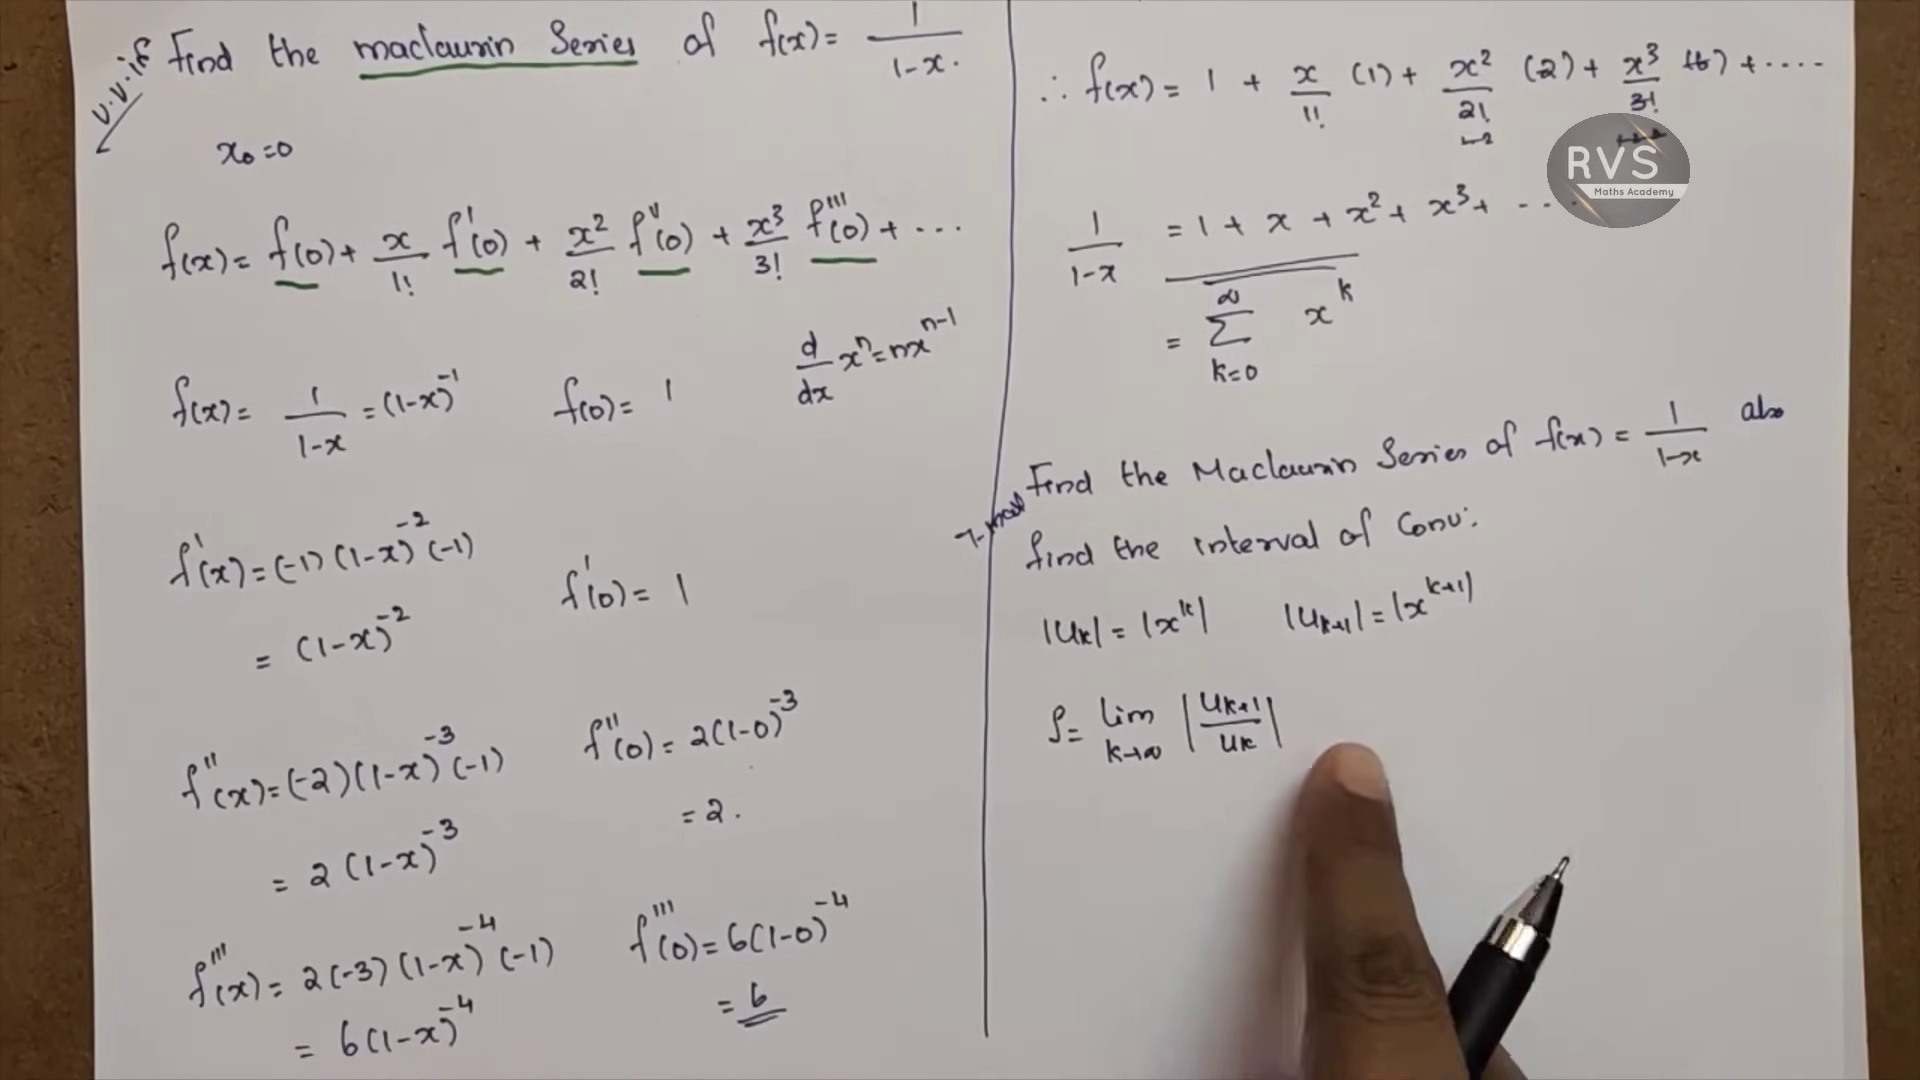 v.v.if
Find the maclaurin Series of f(x) = 1/(1-x).
x₀=0
f(x) = f(0) + x/1! f'(0) + x²/2! f''(0) + x³/3! f'''(0) + ...
d/dx xⁿ = nxⁿ⁻¹
f(x) = 1/(1-x) = (1-x)⁻¹ f(0) = 1
f'(x) = (-1)(1-x)⁻²(-1) f'(0) = 1
= (1-x)⁻²
f''(x) = (-2)(1-x)⁻³(-1) f''(0) = 2(1-0)⁻³
= 2(1-x)⁻³ = 2.
f'''(x) = 2(-3)(1-x)⁻⁴(-1) f'''(0) = 6(1-0)⁻⁴
= 6(1-x)⁻⁴ = 6
∴ f(x) = 1 + x/1! (1) + x²/2! (2) + x³/3! (6) + ....
RVS
Maths Academy
1/(1-x) = 1 + x + x² + x³ + ...
= ∞ Σ k=0 xᵏ
Find the Maclaurin Series of f(x) = 1/(1-x) also
find the interval of Conv:
|uₖ| = |xᵏ| |uₖ₊₁| = |xᵏ⁺¹|
ρ = lim k→∞ |uₖ₊₁/uₖ|